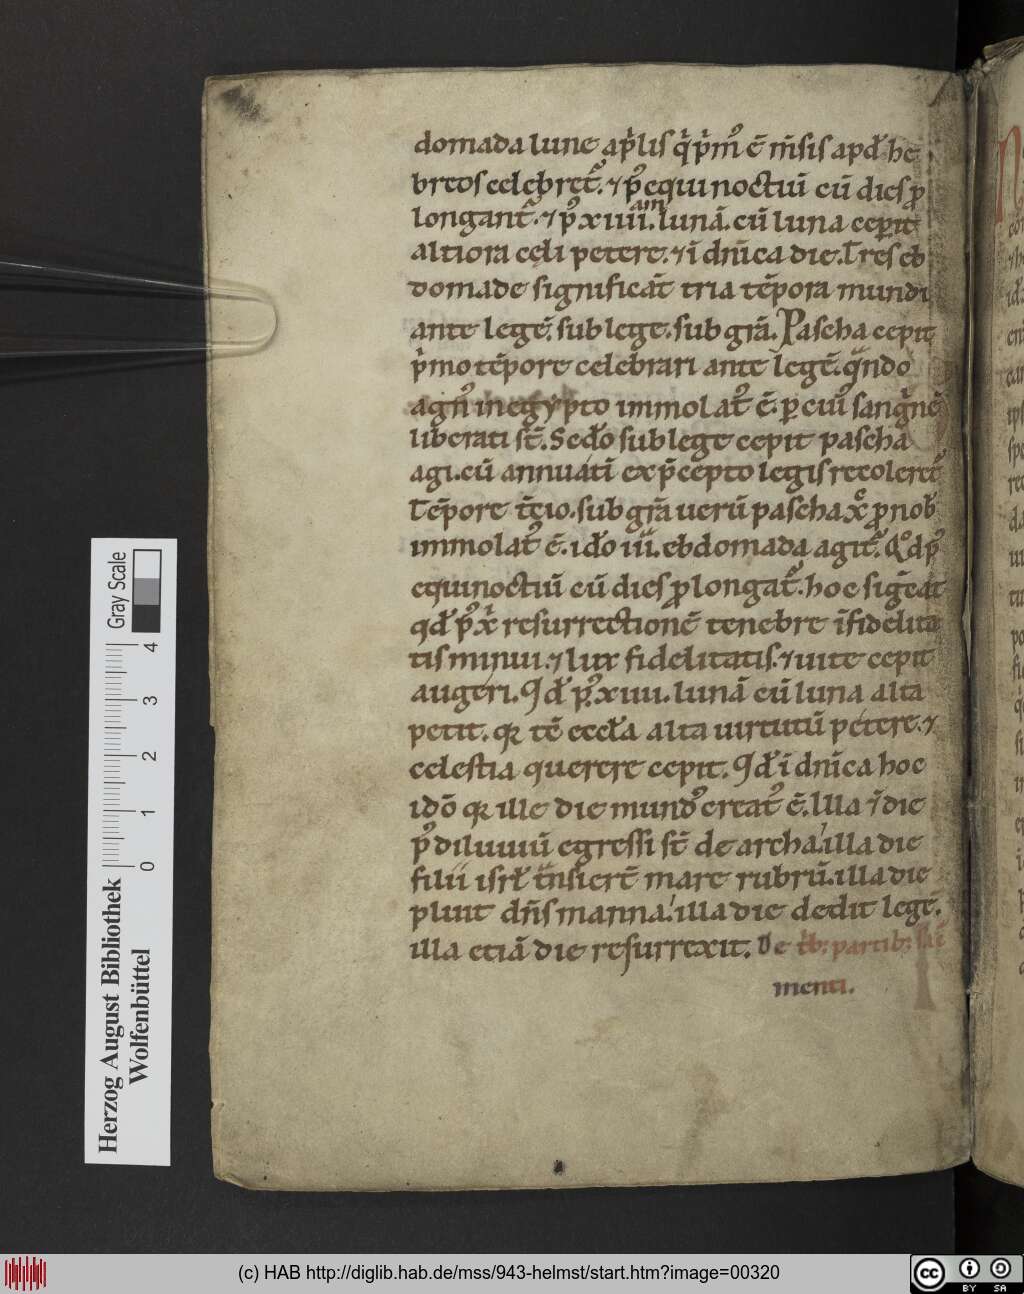 domada lune ap̾lis q̾ p̾m᷒ ē m̄sis apd̾ he
breos celebret᷑. ⁊ p᷒ equinoctiū cū dies ꝓ
longant᷑. ⁊ p᷒ xiiiiam. lunā. cū luna cepit
altiora celi petere. ⁊ ī dn̄ica die. Tres eb
domade significāt tria tēpora mundi
ante legē. sub lege. sub grā. Pascha cepit
p̾mo tēpore celebrari ante legē. qn̄do
agn᷒ in egypto immolat᷒ ē. ꝑ cui᷒ sang̾nē
liberati st̄. Sed̾o sub lege cepit pascha
agi. cū annuatī ex p̄cepto legis recoleret᷑
Tēpore t̄cio. sub grā uerū pascha xp̄c ꝓ nob̾
immolat᷒ ē. id̾o iii. ebdomada agit᷑. Qd̾ p᷒
equinoctiū cū dies ꝓlongat᷑. hoc sigcāt
qd̾ p᷒ x̾ resurrectionē tenebre īfidelita
tis minui. ⁊ lux fidelitatis. ⁊ uite cepit
augeri. Qd̾ p᷒ xiiii. lunā cū luna alta
petit. qꝛ tc̄ eccl̾a alta uirtutū petere. ⁊
celestia querere cepit. Qd̾ ī dn̄ica hoc
idō qꝛ ille die mund᷒ creat᷒ ē. Illa ī die
p᷒ diluuiū egressi st̄ de archa. illa die
filii isrl̾ tn̄sierē mare rubrū. illa die
pluit dn̄s manna. illa die dedit legē.
illa etiā die resurrexit. De t̾b; partib; sac̄
menti.
Herzog August Bibliothek
Wolfenbüttel
Gray Scale
0 1 2 3 4
(c) HAB http://diglib.hab.de/mss/943-helmst/start.htm?image=00320
cc BY SA